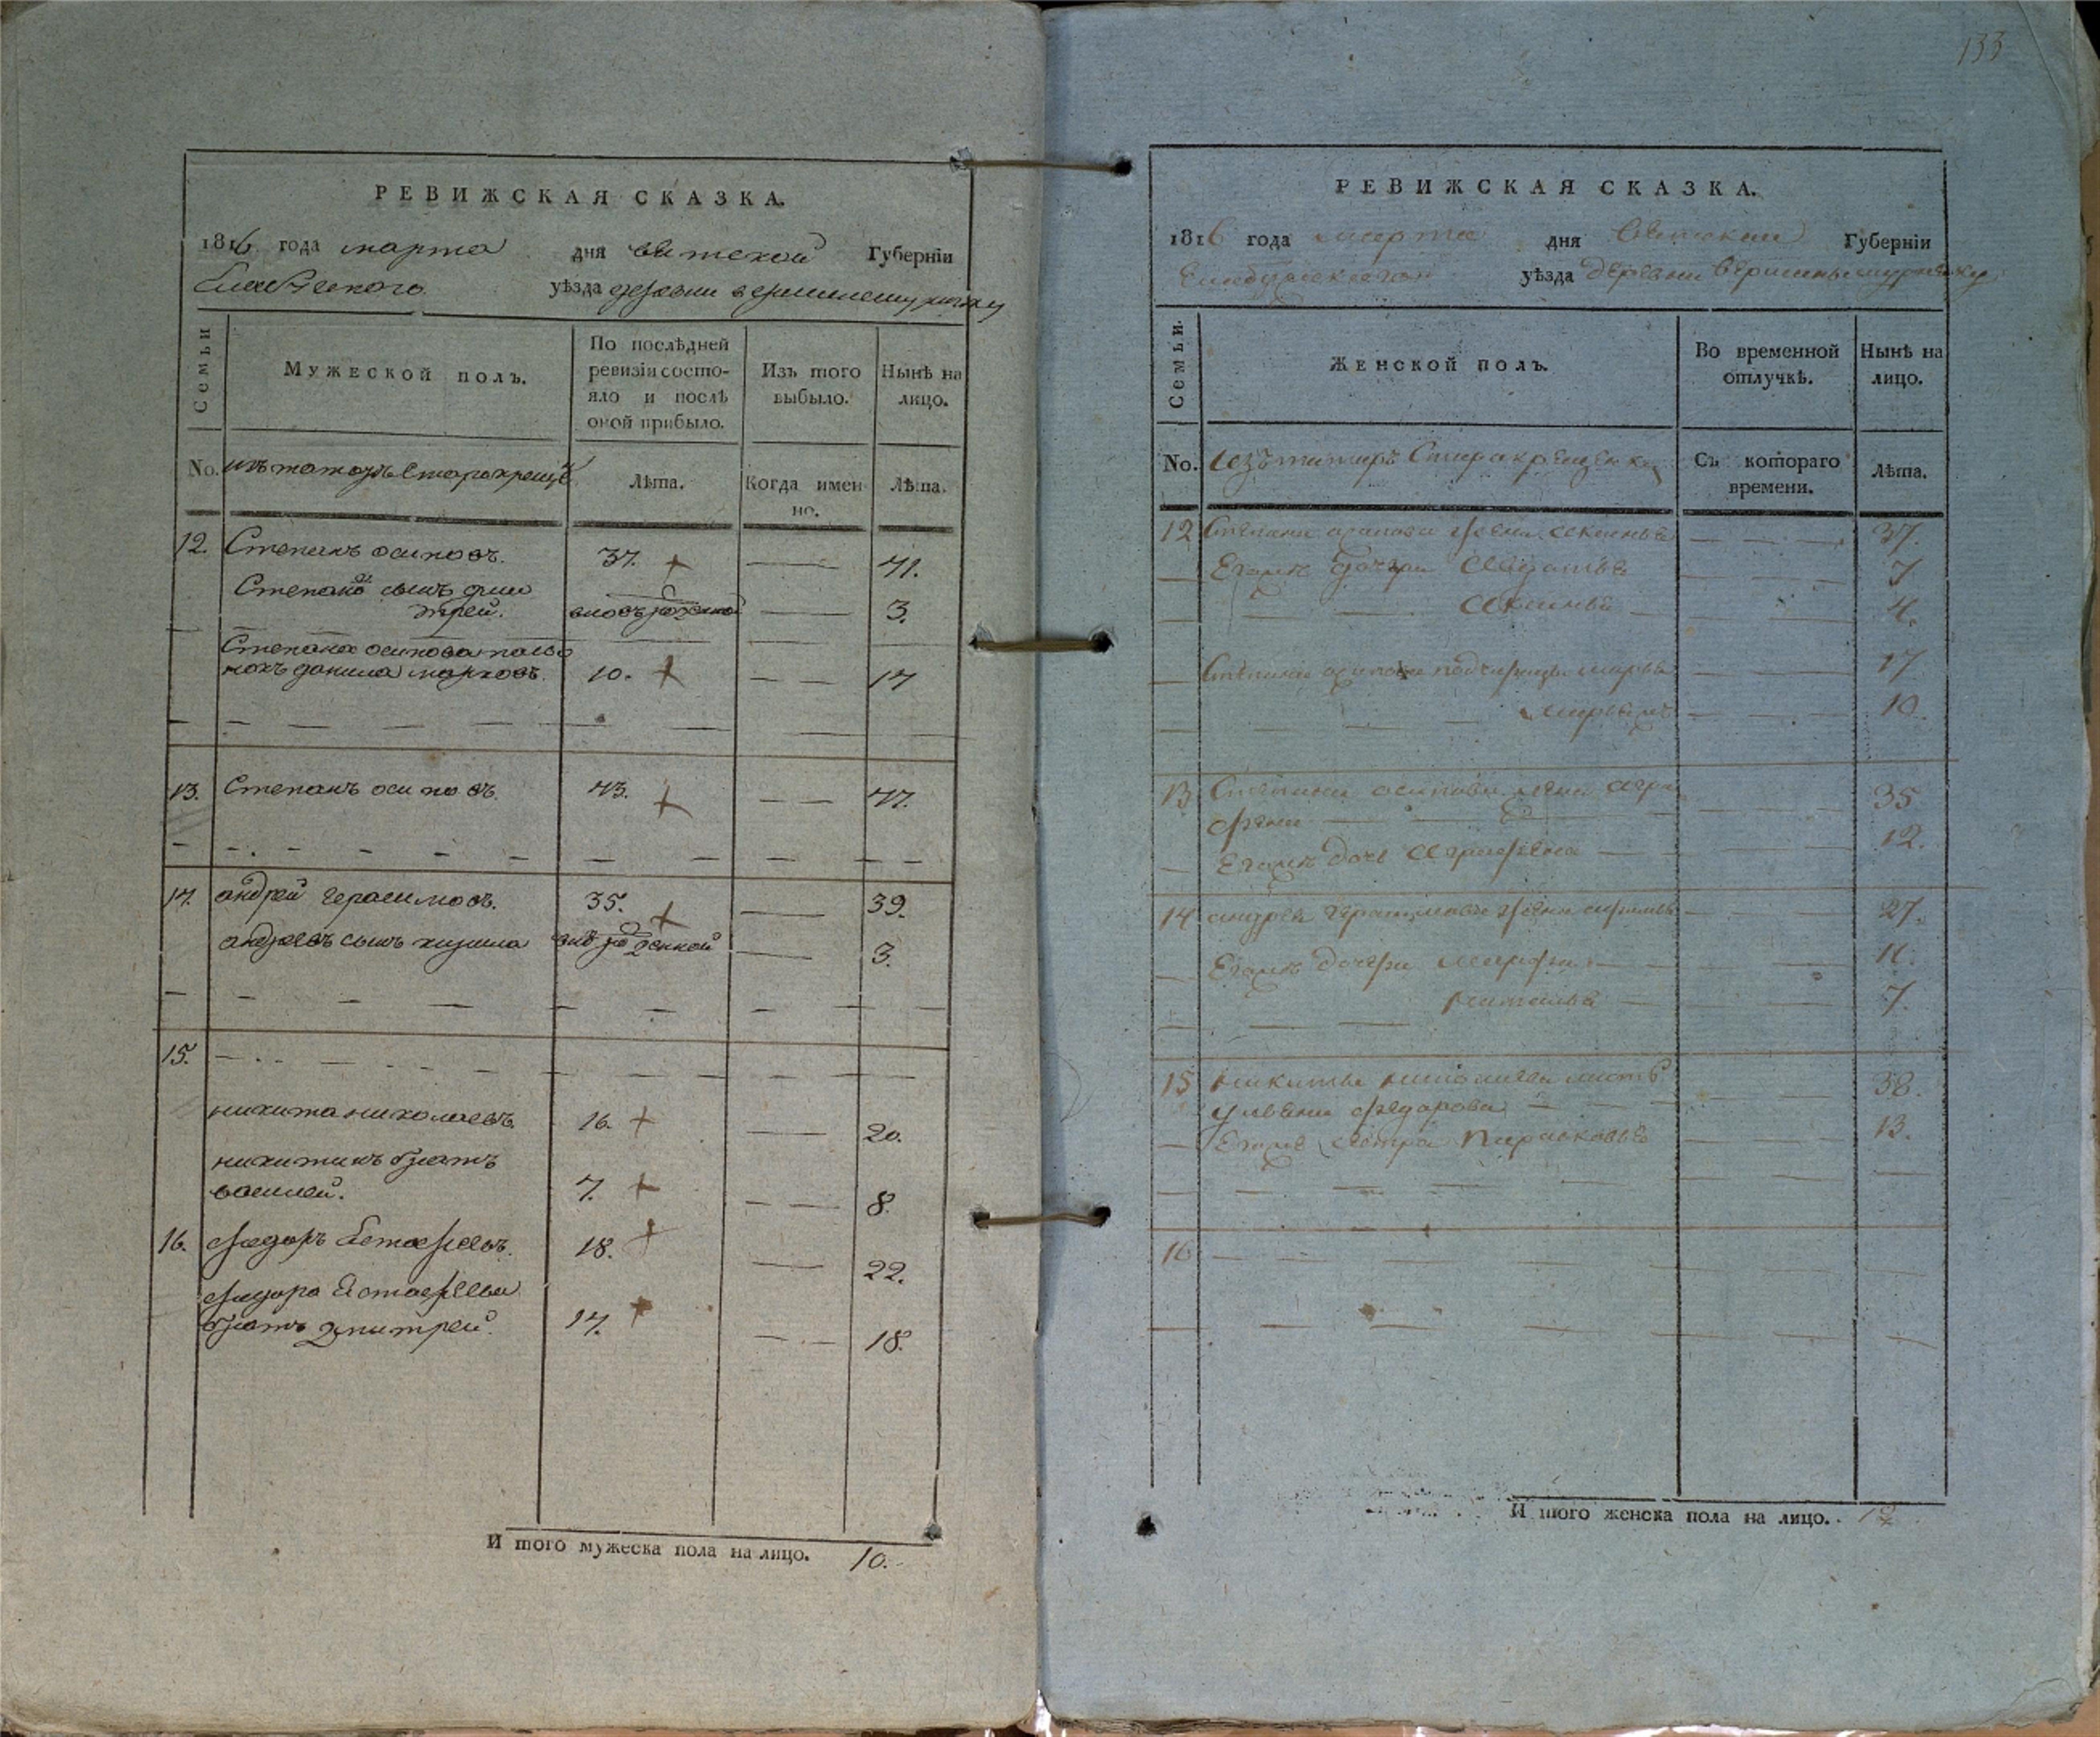 РЕВИЖСКАЯ СКАЗКА.
1816 года марта дня вятской Губерніи
уѣзда деревни
Семьи
Мужеской полъ.
По послѣдней
ревизіи состо-
яло и послѣ
оной прибыло.
Изъ того
выбыло.
Нынѣ на
лицо.
No.
изъ татаръ старокрещ
Лѣта.
Когда имен
но.
Лѣта.
12. Степанъ осиповъ. 37. 41.
Степана сынъ дми
трей. вновьрожденной 3.
Степана осипова пасы
нокъ данила марковъ. 10. 14
13. Степанъ осиповъ. 43. 47.
14. андрей герасимовъ. 35. 39.
андреевъ сынъ 3.
15.
никита николаевъ 16. 20.
никитинъ братъ
василей. 4. 8.
16. федоръ Естафеевъ. 18. 22.
федора Естафеева
братъ дмитрей. 14. 18.
И того мужеска пола на лицо. 10.
133
РЕВИЖСКАЯ СКАЗКА.
1816 года марта дня вятской Губерніи
Елабужскаго уѣзда деревни вершины
Семьи.
Женской полъ.
Во временной
отлучкѣ.
Нынѣ на
лицо.
No.
изъ татаръ Старакрещен
Съ котораго
времени.
Лѣта.
12 Степана осипова жена 37.
Егожъ дочери 7
4.
Степана осипова падчерицы марья 17
10.
13 Степана осипова жена агра
фена 35
Егожъ дочь аграфена 12.
14 андрея герасимова жена 27.
Егожъ дочери марфа 11.
наталья 7.
15 никиты николаева мать
ульяна федорова 38.
Егожъ сестра парасковья 13.
16
И того женска пола на лицо. 12